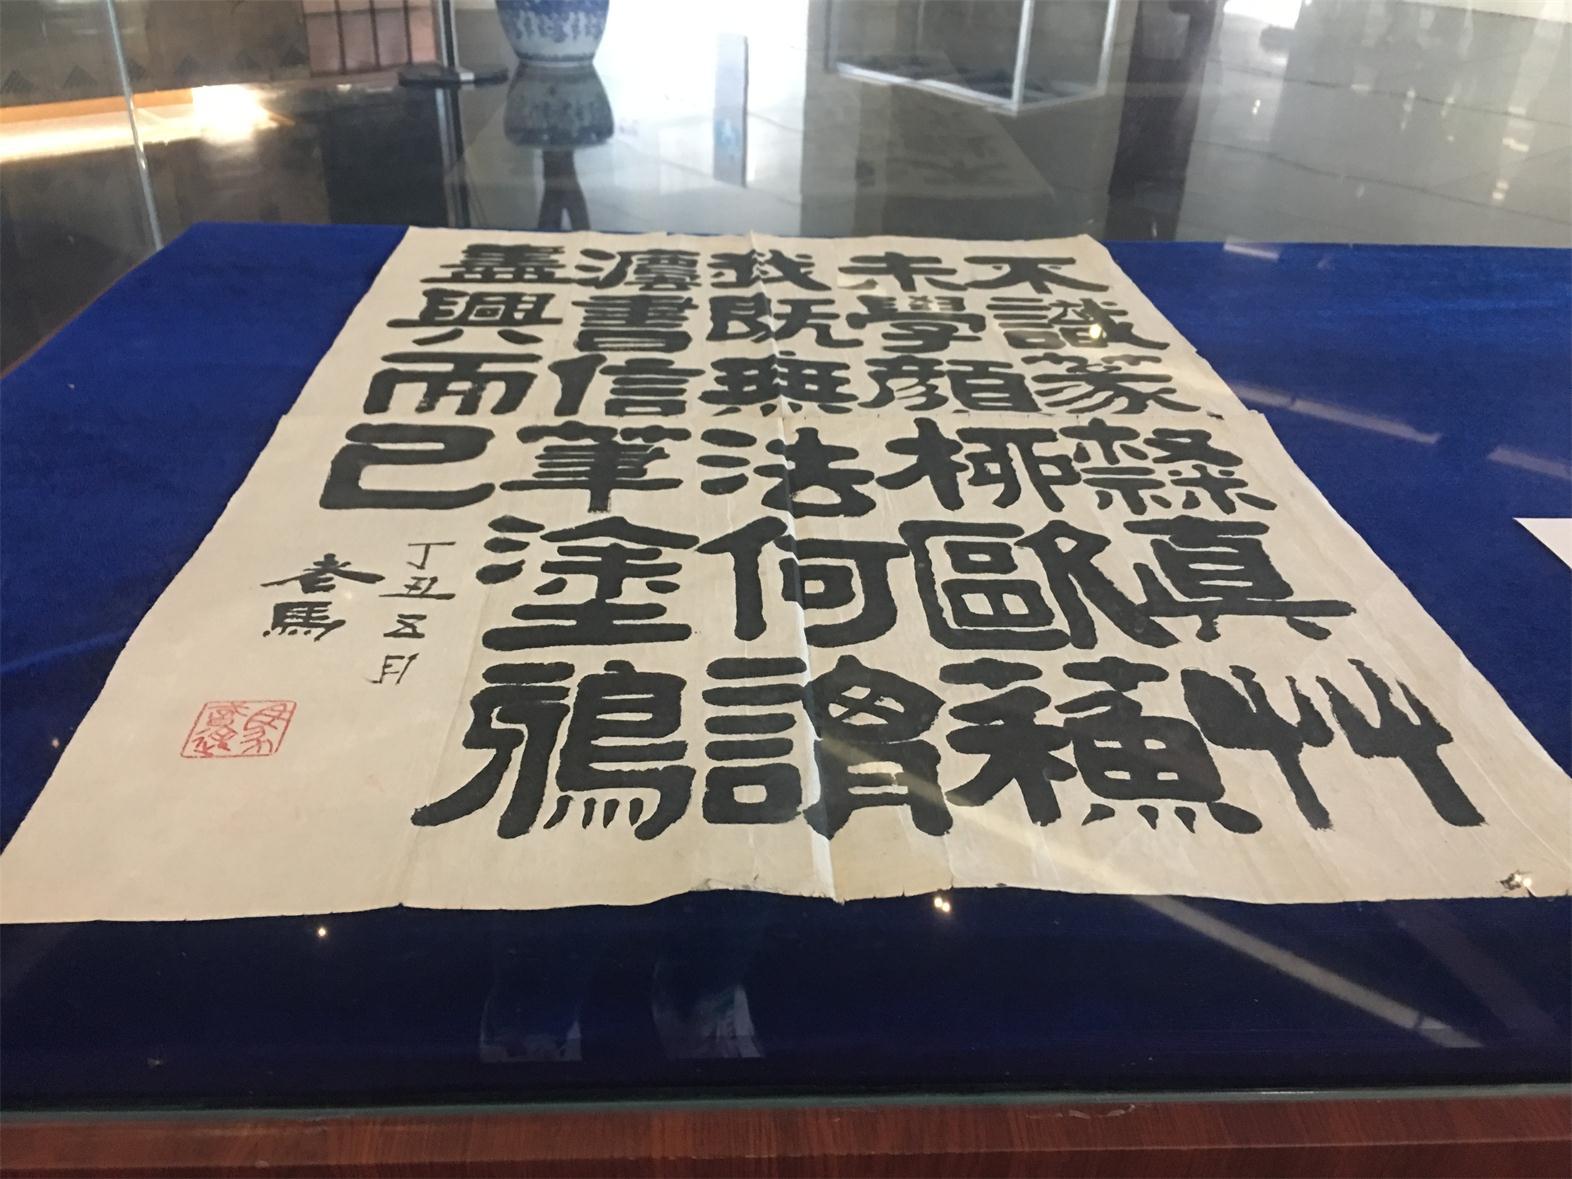 不識篆隸真艸
未學顏柳歐蘓
我既無法何謂
灋書信筆塗鴉
盡興而已
丁丑五月
老馬